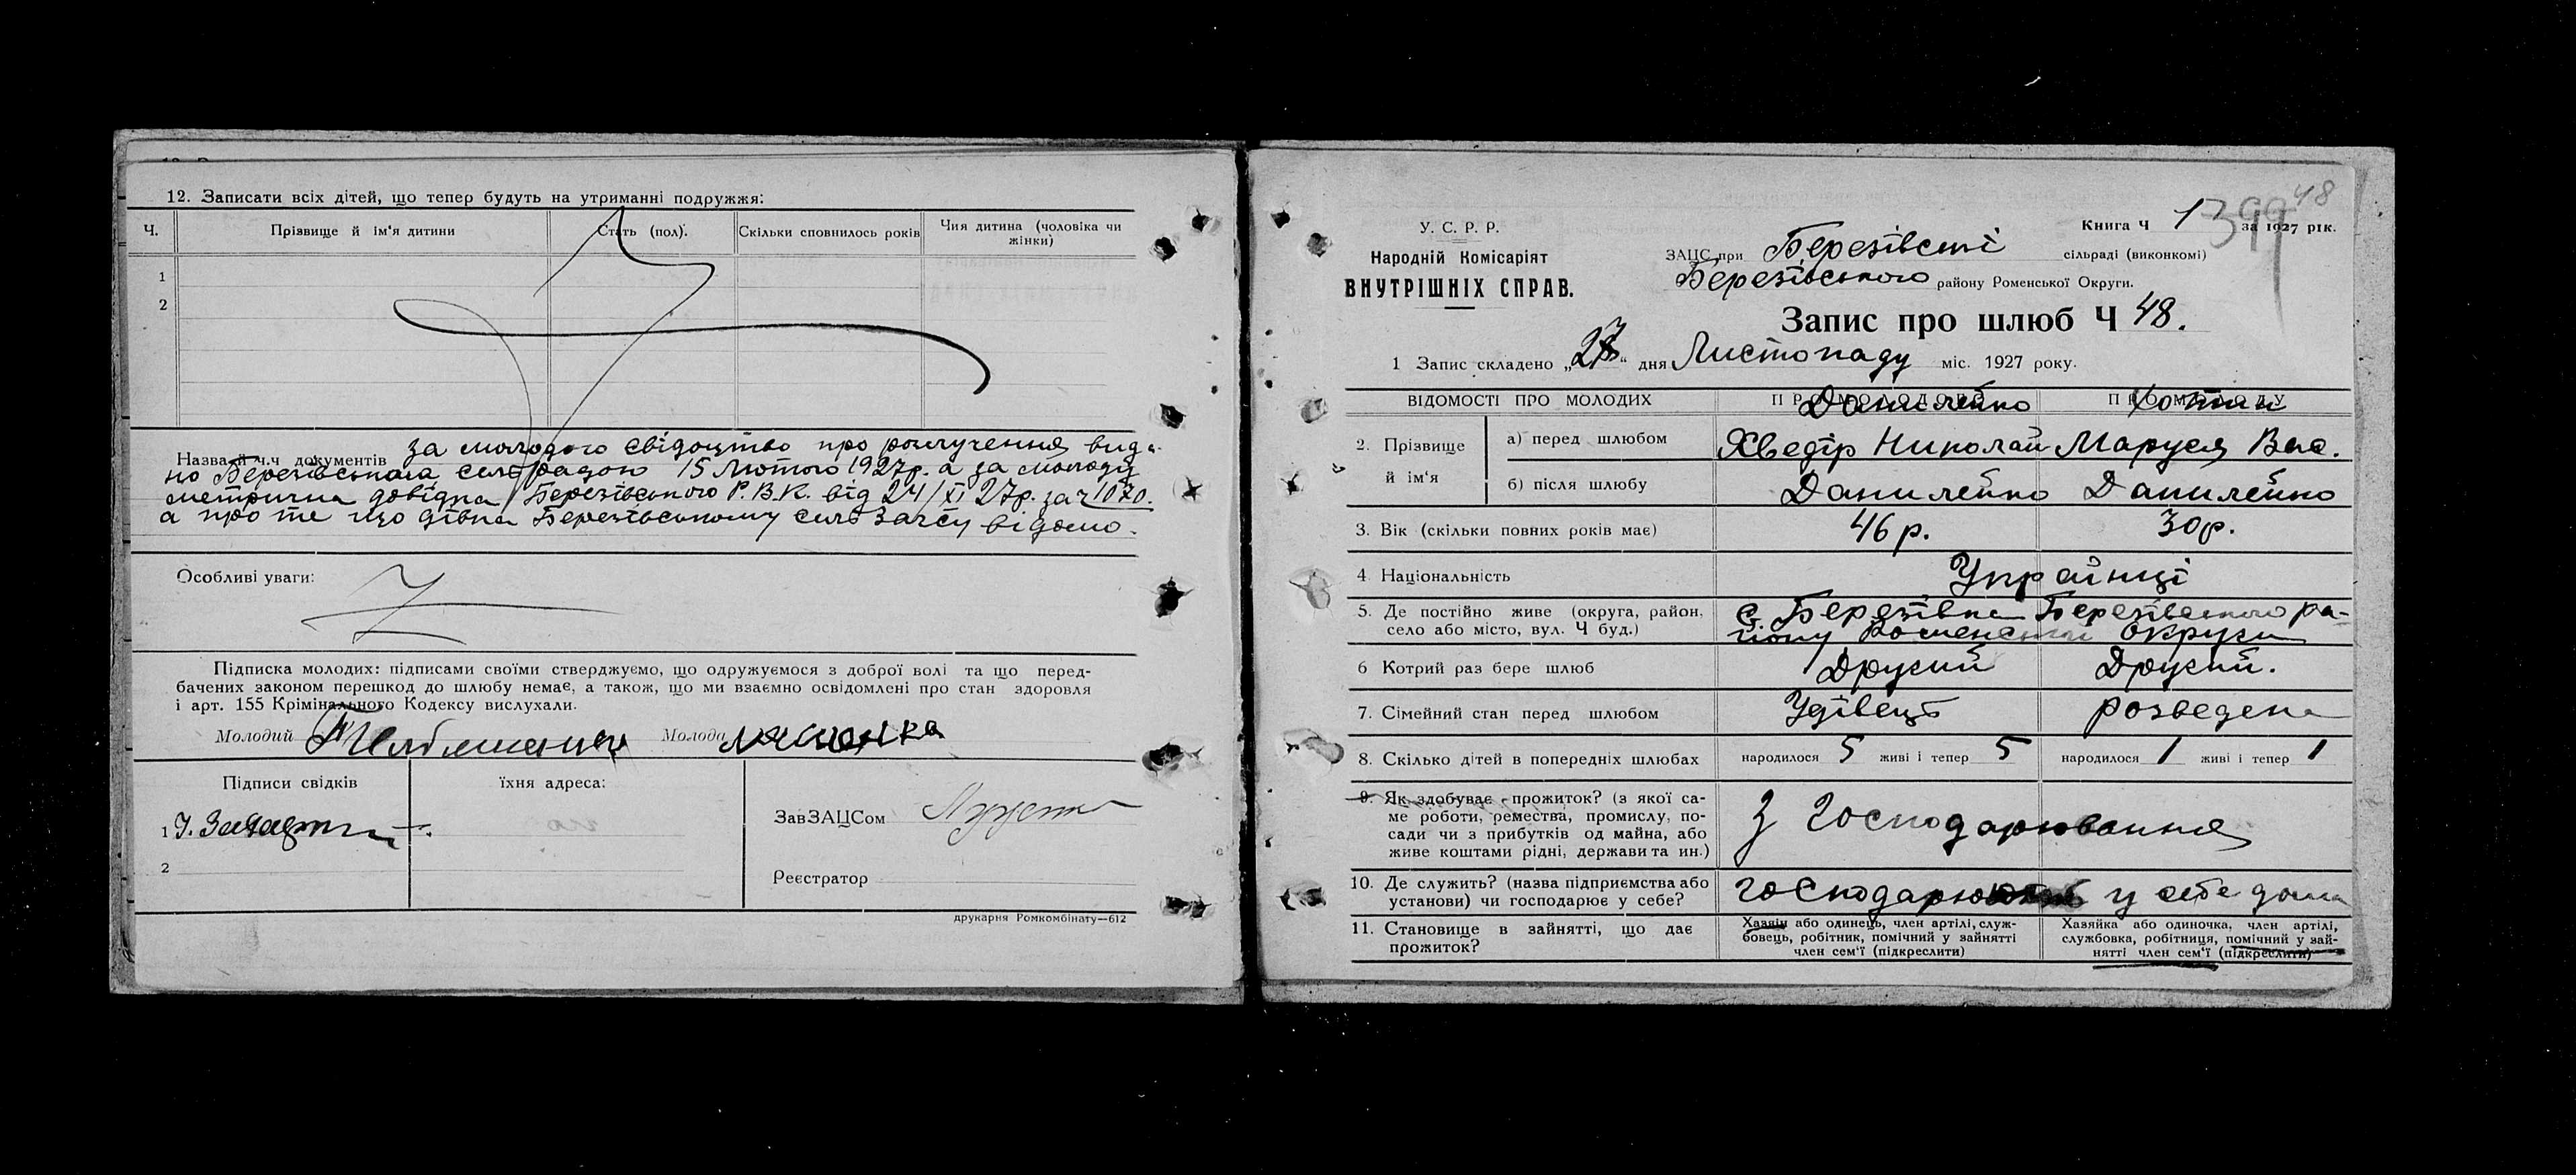 12. Записати всіх дітей, що тепер будуть на утриманні подружжя:
Ч. Прізвище й ім'я дитини Стать (пол). Скільки сповнилось років Чия дитина (чоловіка чи жінки)
1
2
Назва й ч.ч документів за молодого свідоцтво про розлучення вида-
но Березівською сельрадою 15 Лютого 1927р. а за молоду
метрична довідка Березівського Р.В.К. від 24/XI 27р. за ч 1070.
а про те що дівка Березівському сель Загсу відомо.
Особливі уваги:
Підписка молодих: підписами своїми стверджуємо, що одружуємося з доброї волі та що перед-
бачених законом перешкод до шлюбу немає, а також, що ми взаємно освідомлені про стан здоровля
і арт. 155 Крімінального Кодексу вислухали.
Молодий Молода
Підписи свідків їхня адреса:
ЗавЗАЦСом
1
2
Реєстратор
друкарня Ромкомбінату—612
48
399
У. С. Р. Р.
Народній Комісаріят
ВНУТРІШНІХ СПРАВ.
Книга Ч 1 за 1927 рік.
ЗАЦС при Березівські сільраді (виконкомі)
Березівського району Роменської Округи.
Запис про шлюб Ч 48.
1 Запис складено „27“ дня Листопаду міс. 1927 року.
ВІДОМОСТІ ПРО МОЛОДИХ ПРО МОЛОДОГО ПРО МОЛОДУ
2. Прізвище й ім'я
а) перед шлюбом Данилейко Хведір Николай Маруся Вас.
б) після шлюбу Данилейко Данилейко
3. Вік (скільки повних років має) 46 р. 30 р.
4. Національність Українці
5. Де постійно живе (округа, район, село або місто, вул. Ч буд.) с. Березівка Березівського ра-
йону Роменської округи
6 Котрий раз бере шлюб Другий Другий.
7. Сімейний стан перед шлюбом Удівець розведена
8. Скілько дітей в попередніх шлюбах народилося 5 живі і тепер 5 народилося 1 живі і тепер 1
9. Як здобуває прожиток? (з якої са-
ме роботи, ремества, промислу, по-
сади чи з прибутків од майна, або
живе коштами рідні, держави та ин.) З господарювання
10. Де служить? (назва підприємства або
установи) чи господарює у себе? у себе дома
11. Становище в зайнятті, що дає
прожиток?
Хазяїн або одинець, член артілі, служ-
бовець, робітник, помічний у зайнятті
член сем'ї (підкреслити)
Хазяйка або одиночка, член артілі,
службовка, робітниця, помічний у зай-
нятті член сем'ї (підкреслити)